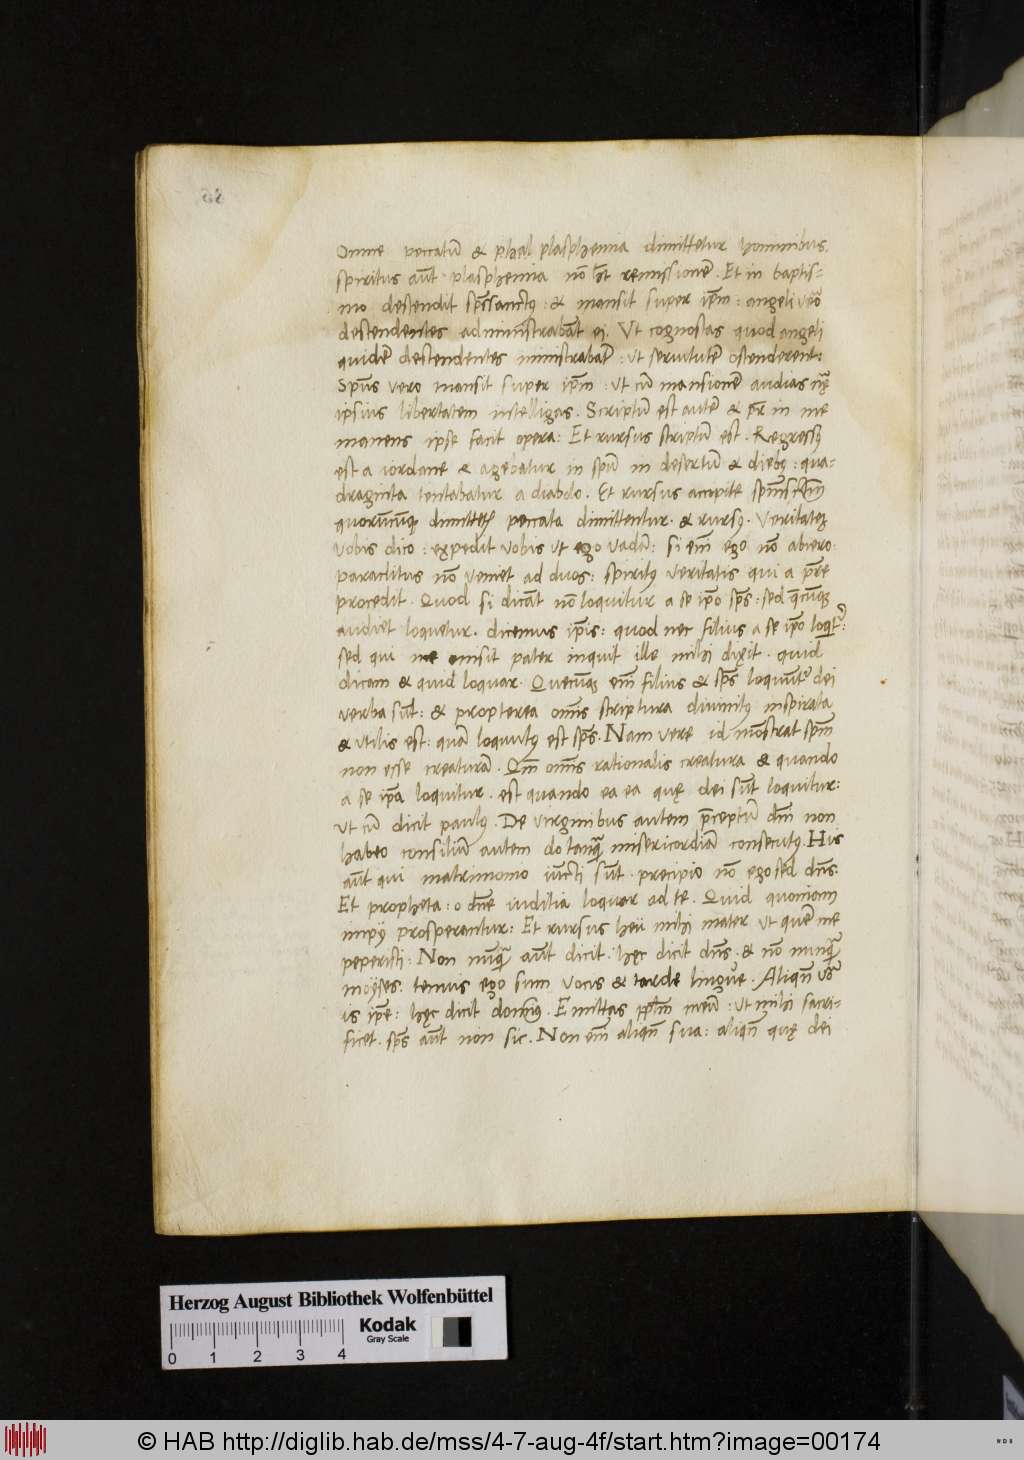 Omne peccatū & phal plasphemia dimittetur hominibus.
spiritus aūt plasphemia nō h̄t remissionē. Et in baptis=
mo descendit sp̄ssanctꝯ: & mansit super ip̄m: angeli v̄o
descendentes administrabāt ei. Ut cognoscas quod angeli
quidē descendentes ministrabāt: ut seruitutē ostenderent:
Sp̄us vero mansit super ip̄m: ut cū mansionē audias
ipsius libertatem intelligas. Scriptū est autē & pr̄ in me
manens ipse facit opera: Et rursus scriptū est. Regressꝯ
est a iordane & agebatur in spū in desertū & diebꝯ: qua=
draginta tentabatur a diabolo. Et rursus accipite
quorūcūqꝫ peccata dimittentur. & rursꝯ. Veritatēꝫ
vobis dico: expedit vobis ut ego vadā: si em̄ ego nō abiero
paraclitus nō veniet ad duos: spiritꝯ veritatis qui a pr̄e
procedit. Quod si dicāt nō loquitur a se ip̄o sp̄s: sed q̄cūqꝫ
audiet loquetur. dicemus ip̄is: quod nec filius a se ip̄o loq̄tᷣ:
sed qui me misit pater inquit ille mihi dixit. quid
dicam & quid loquar. Quecūqꝫ em̄ filius & sp̄s loquūtᷣ dei
verba sūt: & propterea om̄is scriptura diuinitꝯ inspirata
& utilis est: quā loquutꝯ est sp̄s. Nam vere id mōstrat sp̄m
non esse creaturā. Qm̄ om̄is rationalis creatura & quando
a se ip̄a loquitur. est quando ea ea quę dei sūt loquitur:
ut cū dicit paulꝯ. De virginibus autem p̄ceptū dn̄i non
habeo consiliū autem do tanq̄ misericordiā consecutꝯ. His
aūt qui matrimonio iūcti sūt. precipio nō ego sed dn̄s.
Et propheta: o dn̄e iuditia loquar ad te. Quid quoniam
impij prosperantur: Et rursus heu mihi mater ut quē me
peperisti: Non nūq̄ aūt dicit. hęc dicit dn̄s. & nō nunq̄
moyses: tenuis ego sum vocis & tarde linguę. Aliqn̄ v̄o
is ip̄e: hęc dicit dominꝯ. Emittas pplm̄ meū: ut mihi sacri=
ficet. sp̄s aūt non sic. Non em̄ aliqn̄ sua: aliqn̄ quę dei
Herzog August Bibliothek Wolfenbüttel
Kodak
Gray Scale
0 1 2 3 4
© HAB http://diglib.hab.de/mss/4-7-aug-4f/start.htm?image=00174